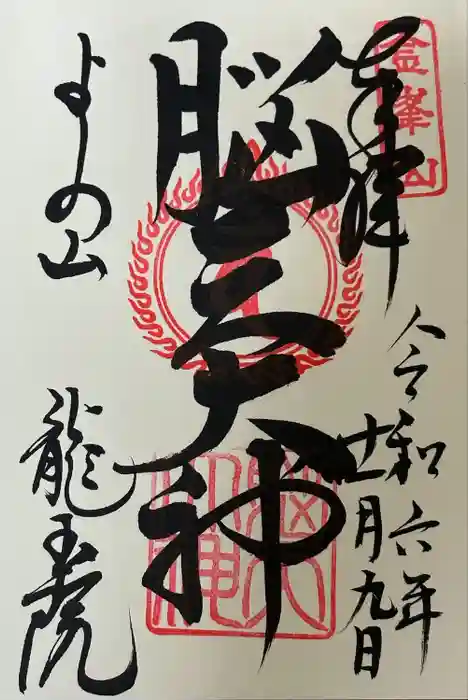 奉拝
金峯山
令和六年
十一月九日
脳天大神
脳天大神
よしの山
龍王院